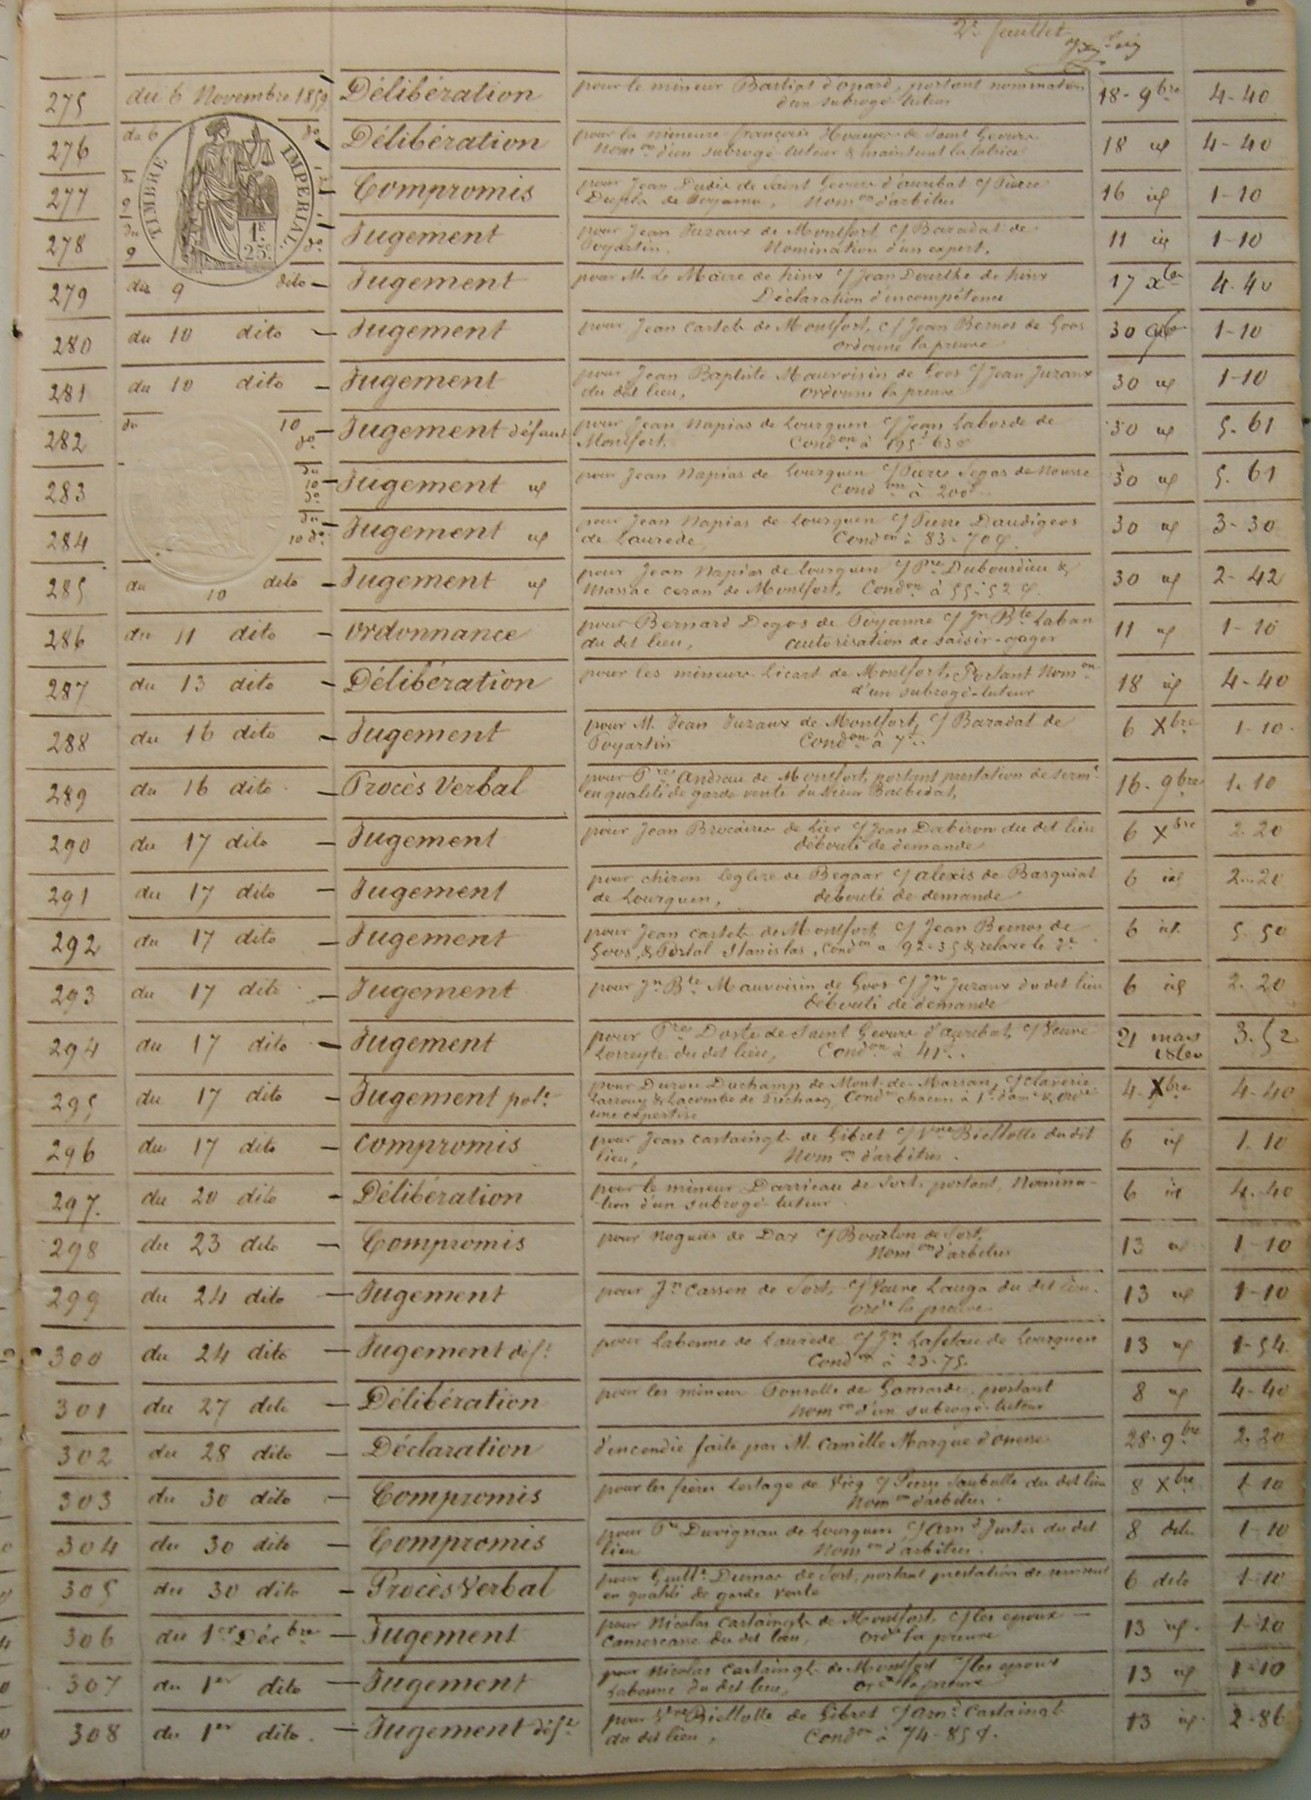 2e feuillet
275 du 6 Novembre 1859 Délibération pour le mineur Bastiat d'onard, portant nomination 18 - 9bre 4-40
d'un subrogé tuteur
276 du 6 do Délibération pour la mineure françoise de Saint Geours 18 id 4-40
Nomon d'un subrogé tuteur & maintient la tutrice
277 Compromis pour Jean Dudix de Saint Geours d'auribat c/ Pierre 16 id 1-10
de Poyanne, Nomon d'arbitres
278 du 9 do Jugement pour Jean Juzaux de Montfort c/ Baradat de 11 id 1-10
Poyartin. Nomination d'un expert.
279 du 9 dito Jugement pour M. Le Maire de hinx c/ Jean Dourthe de hinx 17 Xbre 4-40
Déclaration d'incompétence
280 du 10 dito Jugement pour Jean Castets de Montfort, c/ Jean Bernos de Goos 30 9bre 1-10
ordonne la preuve
281 du 10 dito Jugement pour Jean Baptiste Mauvoisin de Goos c/ Jean Juzaux 30 id 1-10
du dit lieu, ordonne la preuve
282 du 10 do Jugement défaut pour Jean Napias de Lourquen c/ Jean Laborde de 30 id 5-61
Montfort. Condon à 195f 63c
283 du 10 do Jugement id pour Jean Napias de Lourquen c/ Pierre Segas de Nousse 30 id 5-61
Condon à 200f
284 du 10 do Jugement id pour Jean Napias de Lourquen c/ Pierre Daudigeos 30 id 3-30
de Laurede, Condon à 83-70c
285 du 10 dito Jugement id pour Jean Napias de Lourquen c/ Pre Dubourdieu & 30 id 2-42
de Montfort, Condon à 55-52c
286 du 11 dito ordonnance pour Bernard Degos de Poyanne c/ Jn Bte Laban 11 id 1-10
du dit lieu, autorisation de saisir-gager
287 du 13 dito Délibération pour les mineurs Licart de Montfort, Portant Nomon 18 id 4-40
d'un subrogé-tuteur
288 du 16 dito Jugement pour M. Jean Juzaux de Montfort, c/ Baradat de 6 Xbre 1-10
Poyartin Condon à 7f
289 du 16 dito Procès Verbal pour Pre Andrau de Montfort, portant prestation de sermt 16-9bre 1-10
en qualité de garde vente du sieur Barbedat,
290 du 17 dito Jugement pour Jean Brocaires de Lier c/ Jean Dabiron du dit lieu 6 Xbre 2-20
débouté de demande
291 du 17 dito Jugement pour chiron Leglise de Begaar c/ alexis de Basquiat 6 id 2-20
de Lourquen, débouté de demande
292 du 17 dito Jugement pour Jean Castets de Montfort c/ Jean Bernos de 6 id 5-50
Goos, & Portal Stanislas, Condon à 92-35 & relaxe le 2e
293 du 17 dito Jugement pour Jn Bte Mauvoisin de Goos c/ Jn Juzaux du dit lieu 6 id 2-20
débouté de demande
294 du 17 dito Jugement pour Pre Doste de Saint Geours d'auribat, c/ Veuve 21 mars 1860 3-52
Lorreyte du dit lieu, Condon à 41f
295 du 17 dito Jugement polt pour Durou Duchamp de Mont-de-Marsan, c/ Claverie 4 Xbre 4-40
Larrouy & Lacombe de Préchacq, Condon chacun à 1f d'amde & orde
une expertise
296 du 17 dito Compromis pour Jean Castaingt de Gibret c/ Vve Biellotte du dit 6 id 1-10
lieu, Nomon d'arbitres
297. du 20 dito Délibération pour le mineur Darrieau de Sort, portant Nomina- 6 id 4-40
-tion d'un subrogé tuteur
298 du 23 dito Compromis pour Nogues de Dax c/ Bourlon de Sort, 13 id 1-10
Nomon d'arbitres
299 du 24 dito Jugement pour Jn Cassen de Sort, c/ Veuve Lauga du dit lieu. 13 id 1-10
orde la preuve
300 du 24 dito Jugement déft pour Labenne de Laurede c/ Jn Lafitau de Lourquen 13 id 1-54
Condon à 23-75
301 du 27 dito Délibération pour les mineurs Ponsolle de Gamarde, portant 8 id 4-40
Nomon d'un subrogé tuteur
302 du 28 dito Déclaration d'incendie faite par M. Camille Marque d'onesse 28-9bre 2-20
303 du 30 dito Compromis pour les frères Lestage de Vicq c/ Pierre Soubaille du dit lieu 8 Xbre 1-10
Nomon d'arbitres
304 du 30 dito Compromis pour Pre Duvignau de Lourquen c/ Arnd Justes du dit 8 dito 1-10
lieu Nomon d'arbitres.
305 du 30 dito Procès Verbal pour Guille Dumas de Sort, portant prestation de serment 6 dito 1-10
en qualité de garde vente
306 du 1er Décbre Jugement pour Nicolas Castaingt de Montfort, c/ les époux 13 id 1-10
du dit lieu, orde la preuve
307 du 1er dito Jugement pour Nicolas Castaingt de Montfort c/ les époux 13 id 1-10
Labenne du dit lieu, orde la preuve
308 du 1er dito. Jugement déft pour Vve Biellotte de Gibret c/ Arnd Castaingt 13 id 2-86
du dit lieu, Condon à 74-85c.
TIMBRE IMPERIAL.
1F
25c